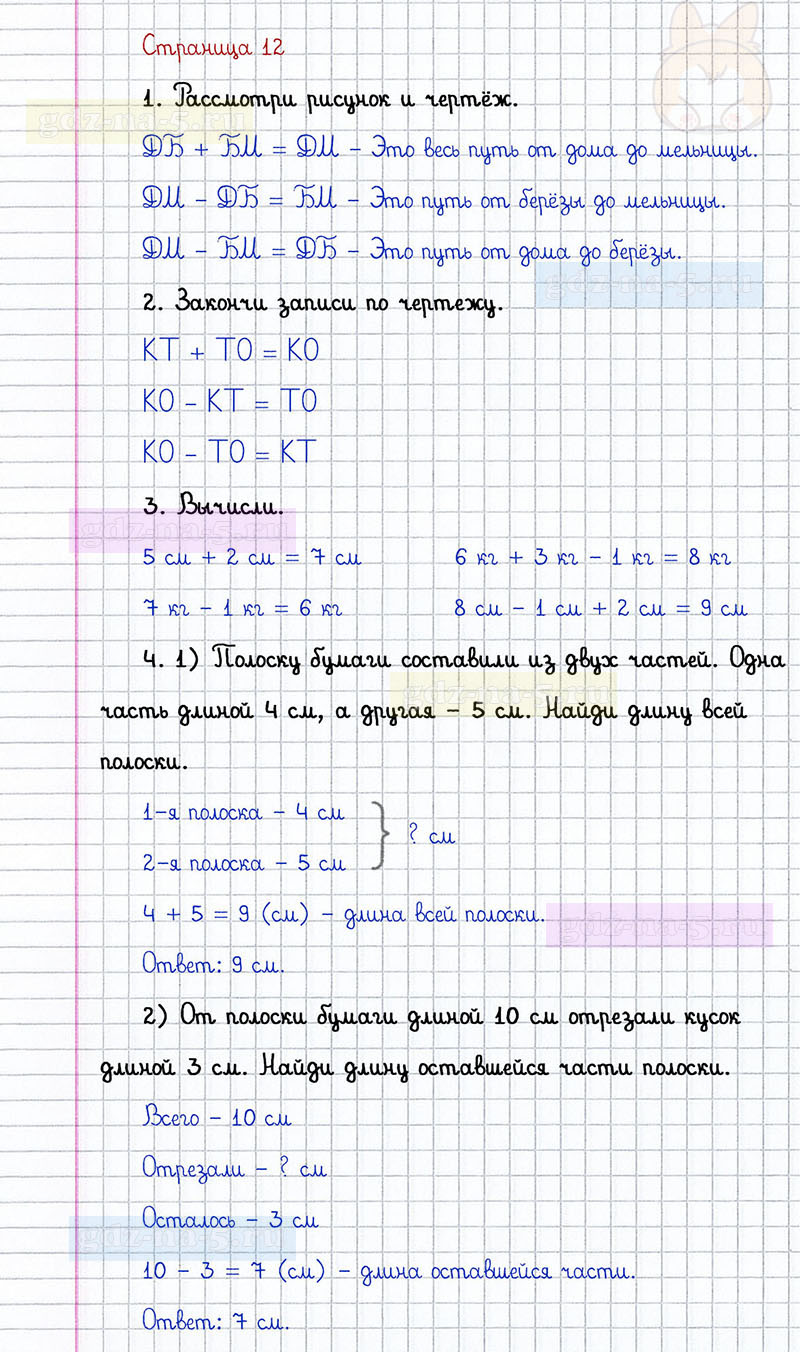 Страница 12
1. Рассмотри рисунок и чертёж.
gdz-na-5.ru
ДБ + БМ = ДМ – Это весь путь от дома до мельницы.
ДМ – ДБ = БМ – Это путь от берёзы до мельницы.
ДМ – БМ = ДБ – Это путь от дома до берёзы.
gdz-na-5.ru
2. Закончи записи по чертежу.
КТ + ТО = КО
КО – КТ = ТО
КО – ТО = КТ
3. Вычисли.
gdz-na-5.ru
5 см + 2 см = 7 см 6 кг + 3 кг – 1 кг = 8 кг
7 кг – 1 кг = 6 кг 8 см – 1 см + 2 см = 9 см
4. 1) Полоску бумаги составили из двух частей. Одна
gdz-na-5.ru
часть длиной 4 см, а другая – 5 см. Найди длину всей
полоски.
1-я полоска – 4 см
? см
2-я полоска – 5 см
4 + 5 = 9 (см) – длина всей полоски.
gdz-na-5.ru
Ответ: 9 см.
2) От полоски бумаги длиной 10 см отрезали кусок
длиной 3 см. Найди длину оставшейся части полоски.
Всего – 10 см
Отрезали – ? см
Осталось – 3 см
gdz-na-5.ru
10 – 3 = 7 (см) – длина оставшейся части.
Ответ: 7 см.